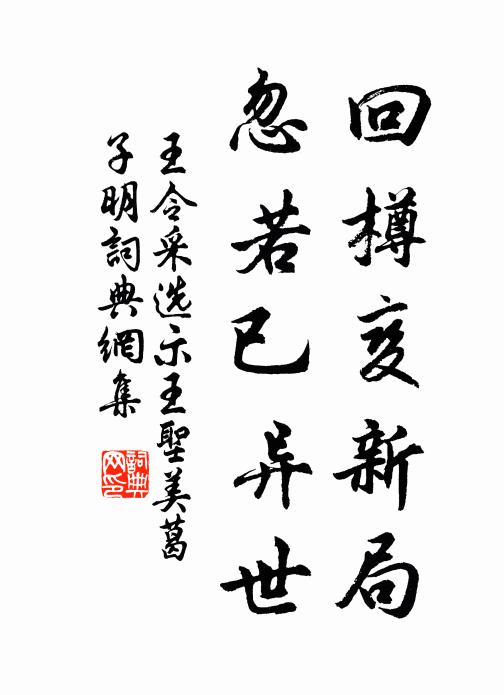 回樽变新局
忽若已异世
王令采选示王聖美葛
子明詞典網集
詞典网印